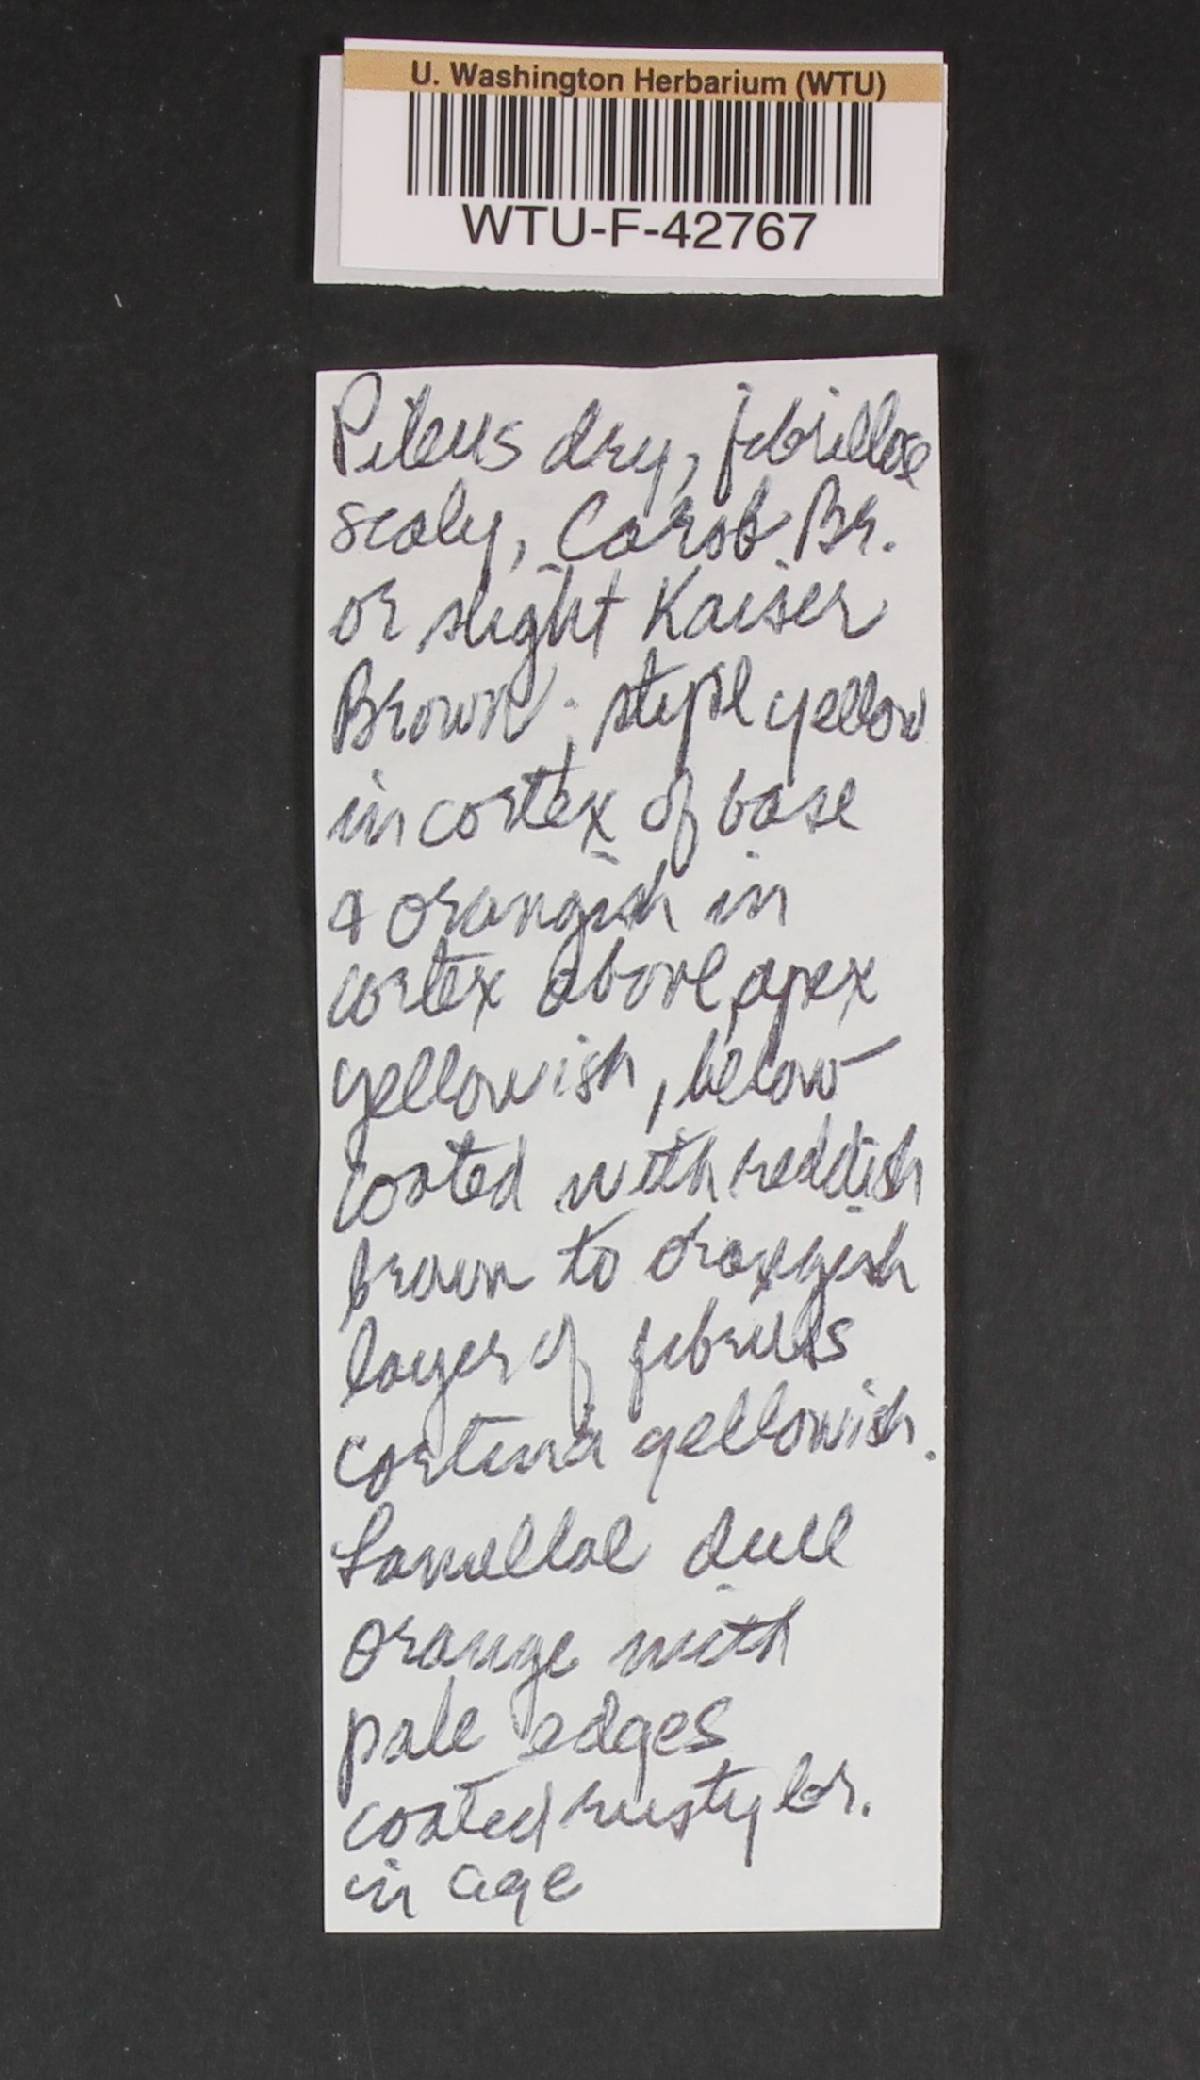 U. Washington Herbarium (WTU)
WTU-F-42767
Pileus dry, fibrillose
scaly, Carob Br.
or slight Kaiser
Brown; stipe yellow
in cortex of base
& orangish in
cortex above, apex
yellowish, below
coated with reddish
brown to orangish
layer of fibrils
cortina yellowish.
Lamellae dull
orange with
pale edges
coated rusty br.
in age